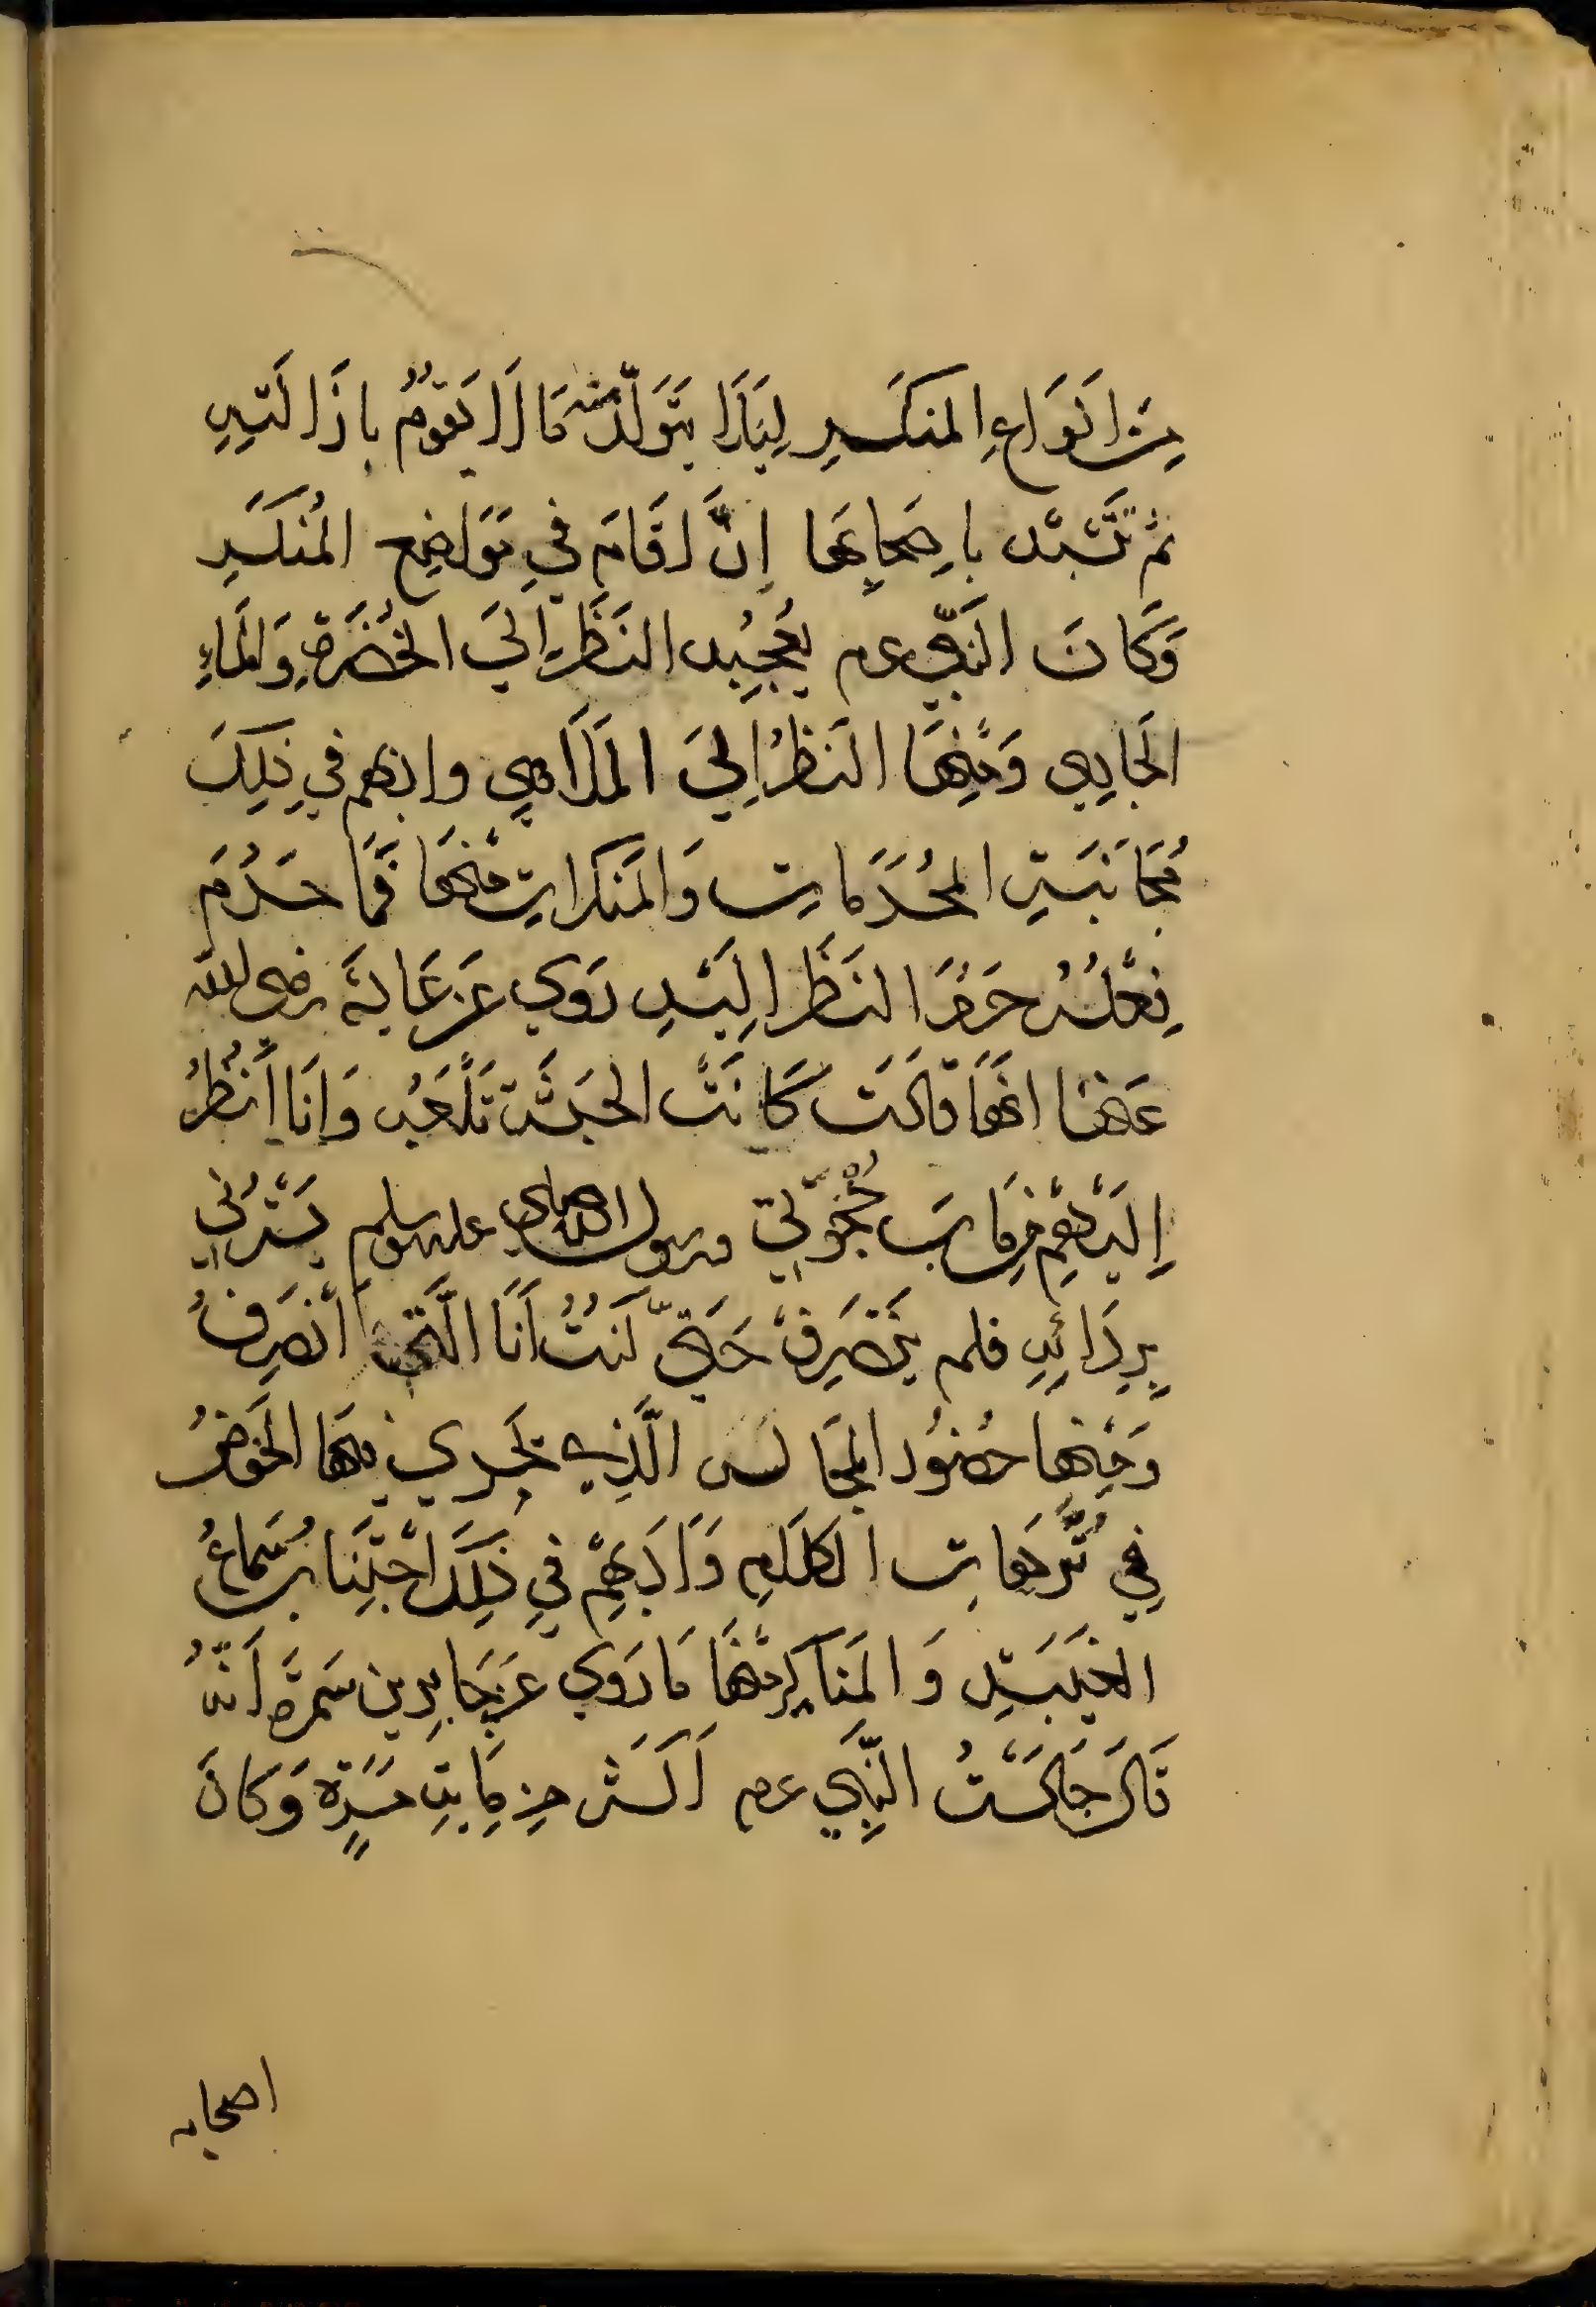 مِنْ اَنوَاعِ المنكَرِ لِيَلَا يَتَوَلَّدَ منه مَا لَا يَقُومُ بِاِزَالَتِهِ
ثم تَشَبَّه بِاصحَابِهَا اِنَّ اقَامَ فِي مَوَاضِعِ المُنكَرِ
وَكَانَ النَبِّي عم يعْجِبُه النَظَر اِليَ الخُضَرةِ وَالمَاءِ
الجَارِي وَمِنْهَا النَظرُ اِليَ المَلَاهِي وادبهم فِي ذَلِكَ
مُجَانَبَتِ المُحَرَمَاتِ وَالمنكَراتِ مِنْهَا فَمَا حَرُمَ
فِعْلُهُ حَرُمَ النَظَر اِلَيْهِ رَوي عَن عَايشَة رضى الله
عَنْهَا انهَا قالَت كَانَتْ الحَبشَة تَلْعَبُ وَاَنَا اَنْظُرُ
اِلَيْهِمْ مِن بَابِ حُجْرَتِي ورسول الله صلى عليه وسلم يَسْتُرُنِي
بِرِدَائِهِ فلم يَنْصَرِفْ حَتيّ كُنتُ اَنَا الَّتيِ اَنْصَرِفُ
وَمِنْها حُضُورُ المجَالس الَّذِي يَجرِي فيهَا الخَوْضُ
فِي تُرَّهَاتِ الكَلَامِ وَاَدَبهِمْ فِي ذَلِكَ اجْتِنَاب سَمَاعُ
الغيبَةِ وَالمَنَاكِر مِنْهَا مَا رَوي عَن جَابِرِ بن سَمرة اَنّهُ
قَالَ جَالَسْتُ النَّبِي عم اَكثَر مِن مِايةِ مَرَّةٍ وَكانَ
اصحابه